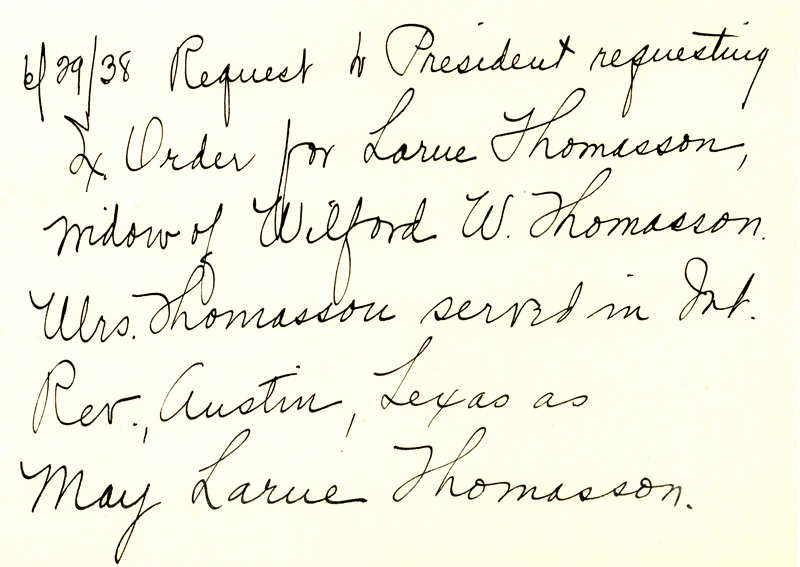 6/29/38 Request to President requesting
Ex. Order for Larue Thomasson,
widow of Wilford W. Thomasson.
Mrs. Thomasson served in Int.
Rev., Austin, Texas as
May Larue Thomasson.